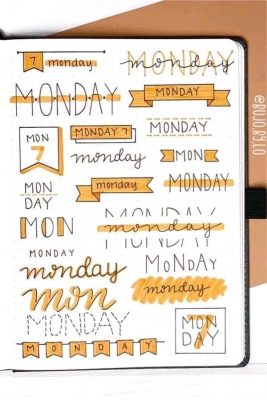 7 monday
MONDAY
monday
MONDAY
MONDAY
MON
7
MONDAY 7
MONDAY
monday
MON
MON
DAY
monday
MONDAY
MON
MONDAY
monday
MONDAY
MoNDAY
monday
monday
mon
MONDAY
MON
7
DAY
MONDAY